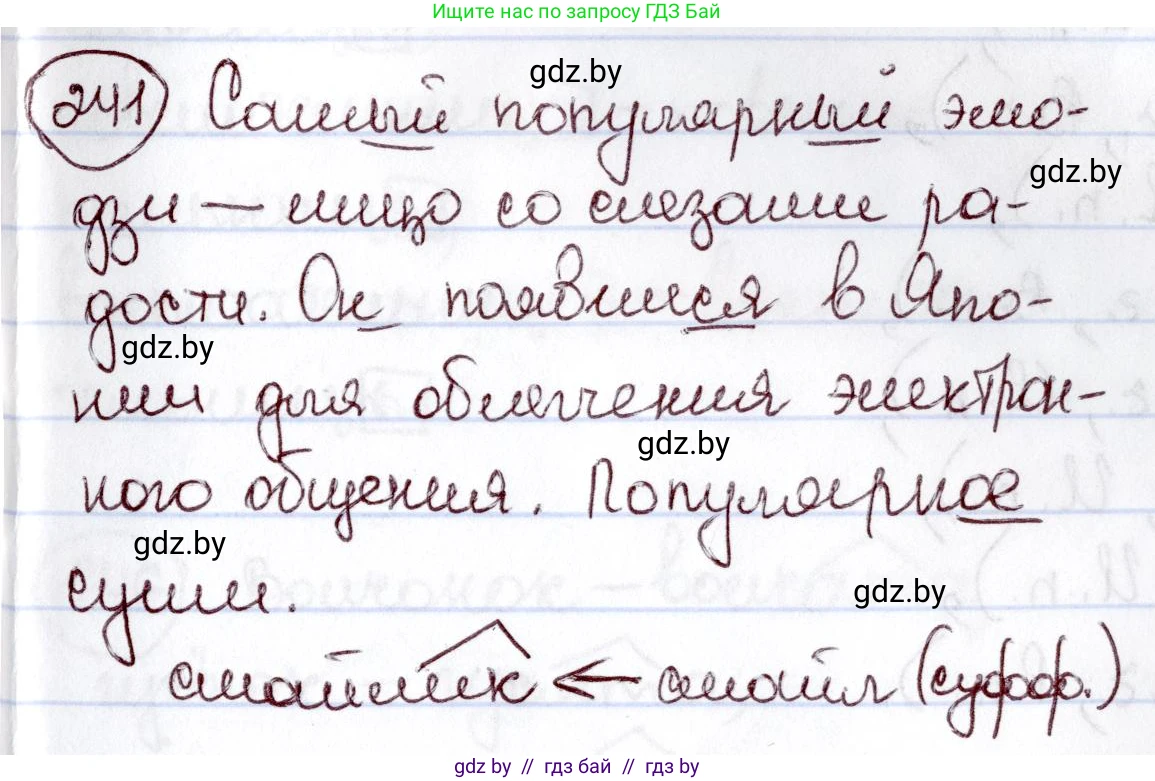 Ищите нас по запросу ГДЗ Бай
241 Самый популярный эмо-
gdz.by
gdz.by
дзи — лицо со слезами ра-
дости. Он появился в Япо-
gdz.by
нии для облегчения электрон-
gdz.by
ного общения. Популярное
gdz.by
суши.
gdz.by
смайлик ← смайл (суффф.)
gdz.by // гдз бай // гдз by